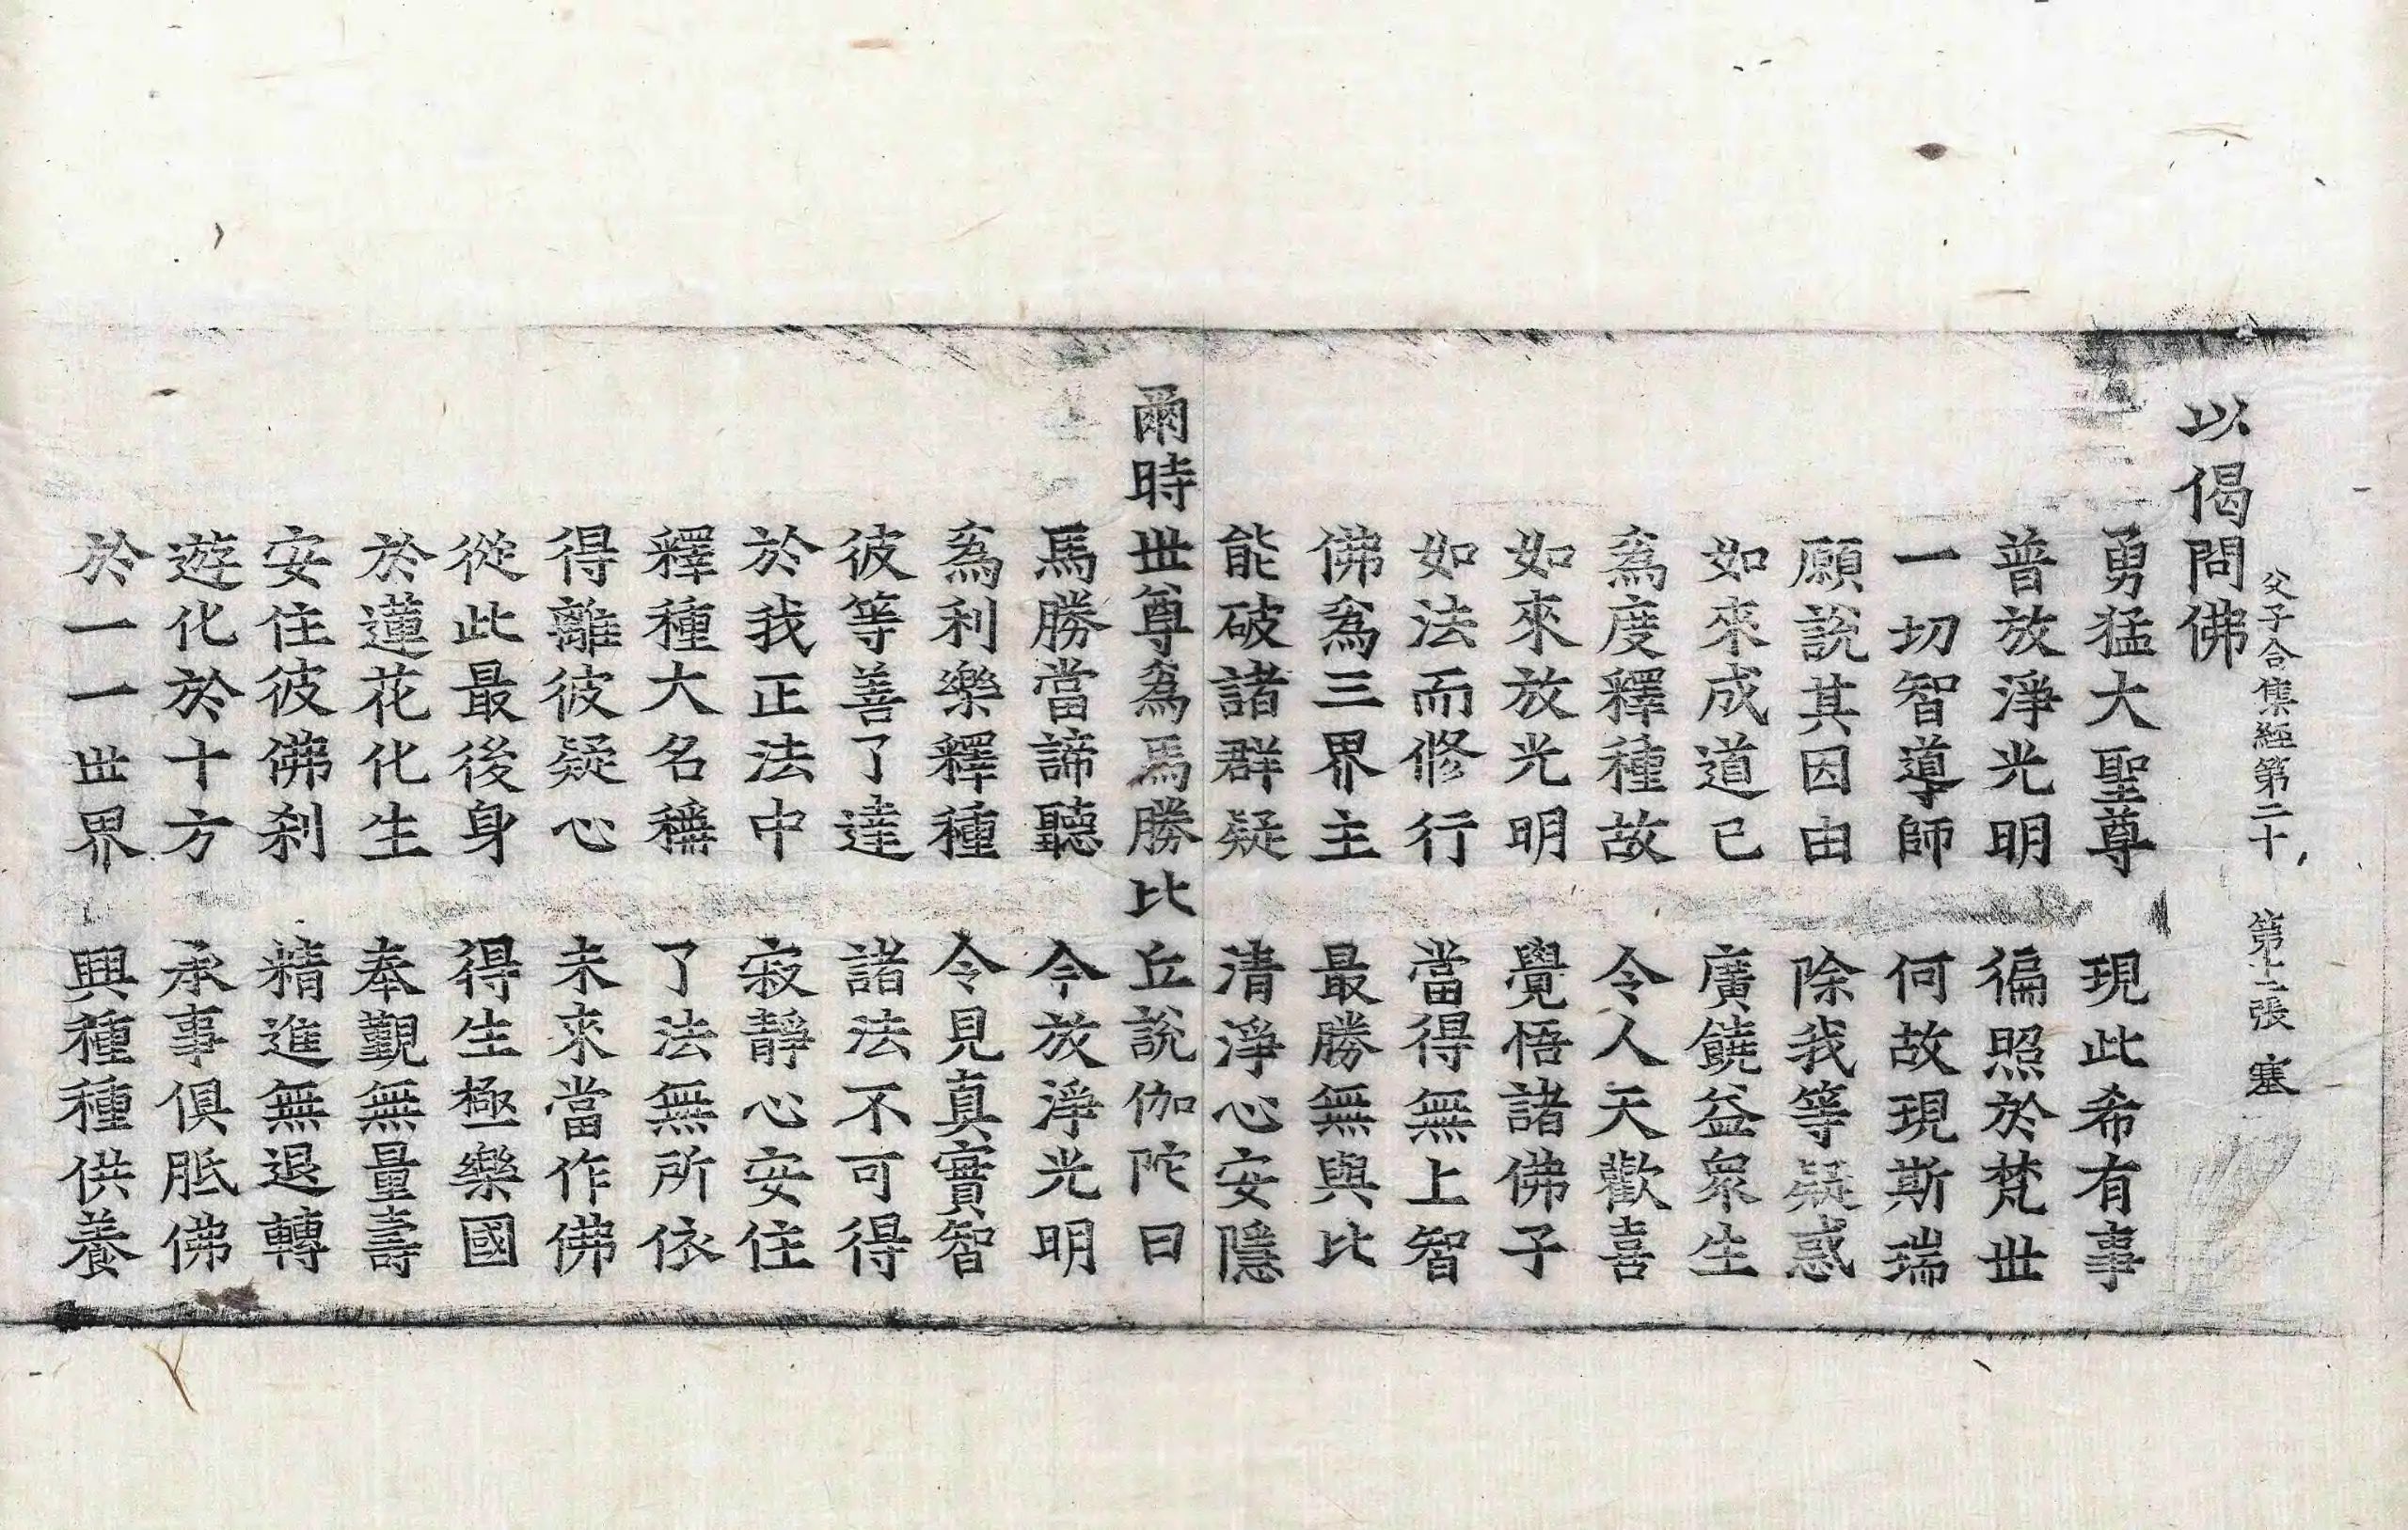 父子合集經第二十 第十二張 塞
以偈問佛
勇猛大聖尊 現此希有事
普放淨光明 徧照於梵世
一切智導師 何故現斯瑞
願說其因由 除我等疑惑
如來成道已 廣饒益衆生
爲度釋種故 令人天歡喜
如來放光明 覺悟諸佛子
如法而修行 當得無上智
佛爲三界主 最勝無與比
能破諸群疑 清淨心安隱
爾時世尊爲馬勝比丘說伽陀曰
馬勝當諦聽 今放淨光明
爲利樂釋種 令見真實智
彼等善了達 諸法不可得
於我正法中 寂靜心安住
釋種大名稱 了法無所依
得離彼疑心 未來當作佛
從此最後身 得生極樂國
於蓮花化生 奉覲無量壽
安住彼佛刹 精進無退轉
遊化於十方 承事俱胝佛
於一一世界 興種種供養